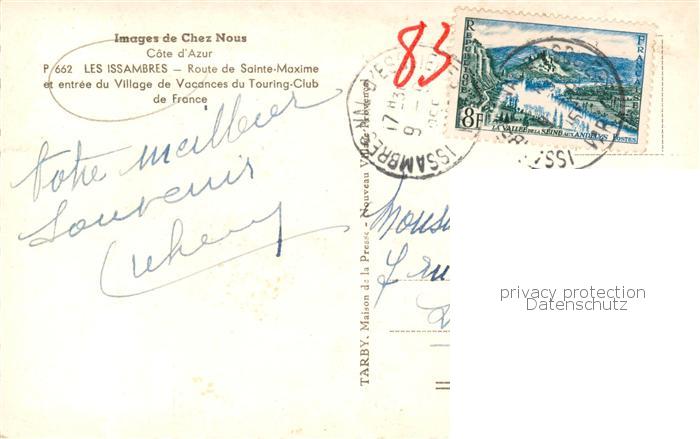 Images de Chez Nous
Côte d'Azur
P 662 LES ISSAMBRES — Route de Sainte-Maxime
et entrée du Village de Vacances du Touring-Club
de France
83
REPUBLIQUE FRANÇAISE
8F
LA VALLÉE DE LA SEINE AUX ANDELYS POSTES
ISSAMBRES
17 H3
9
VAR
Notre meilleur
souvenir
TARBY. Maison de la Presse - Nouveau Village Provençal
Monsi
7 rue
privacy protection
Datenschutz